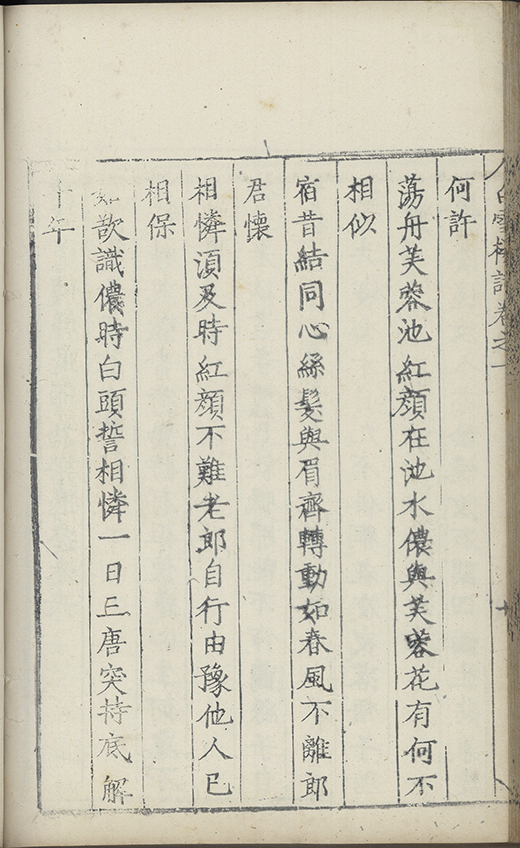 白雪樓詩卷之一
何許
蕩舟芙蓉池紅顏在池水儂與芙蓉花有何不
相似
宿昔結同心絲髮與眉齊轉動如春風不離郎
君懷
相憐須及時紅顏不難老郎自行由豫他人已
相保
歡識儂時白頭誓相憐一日三唐突持底解
年